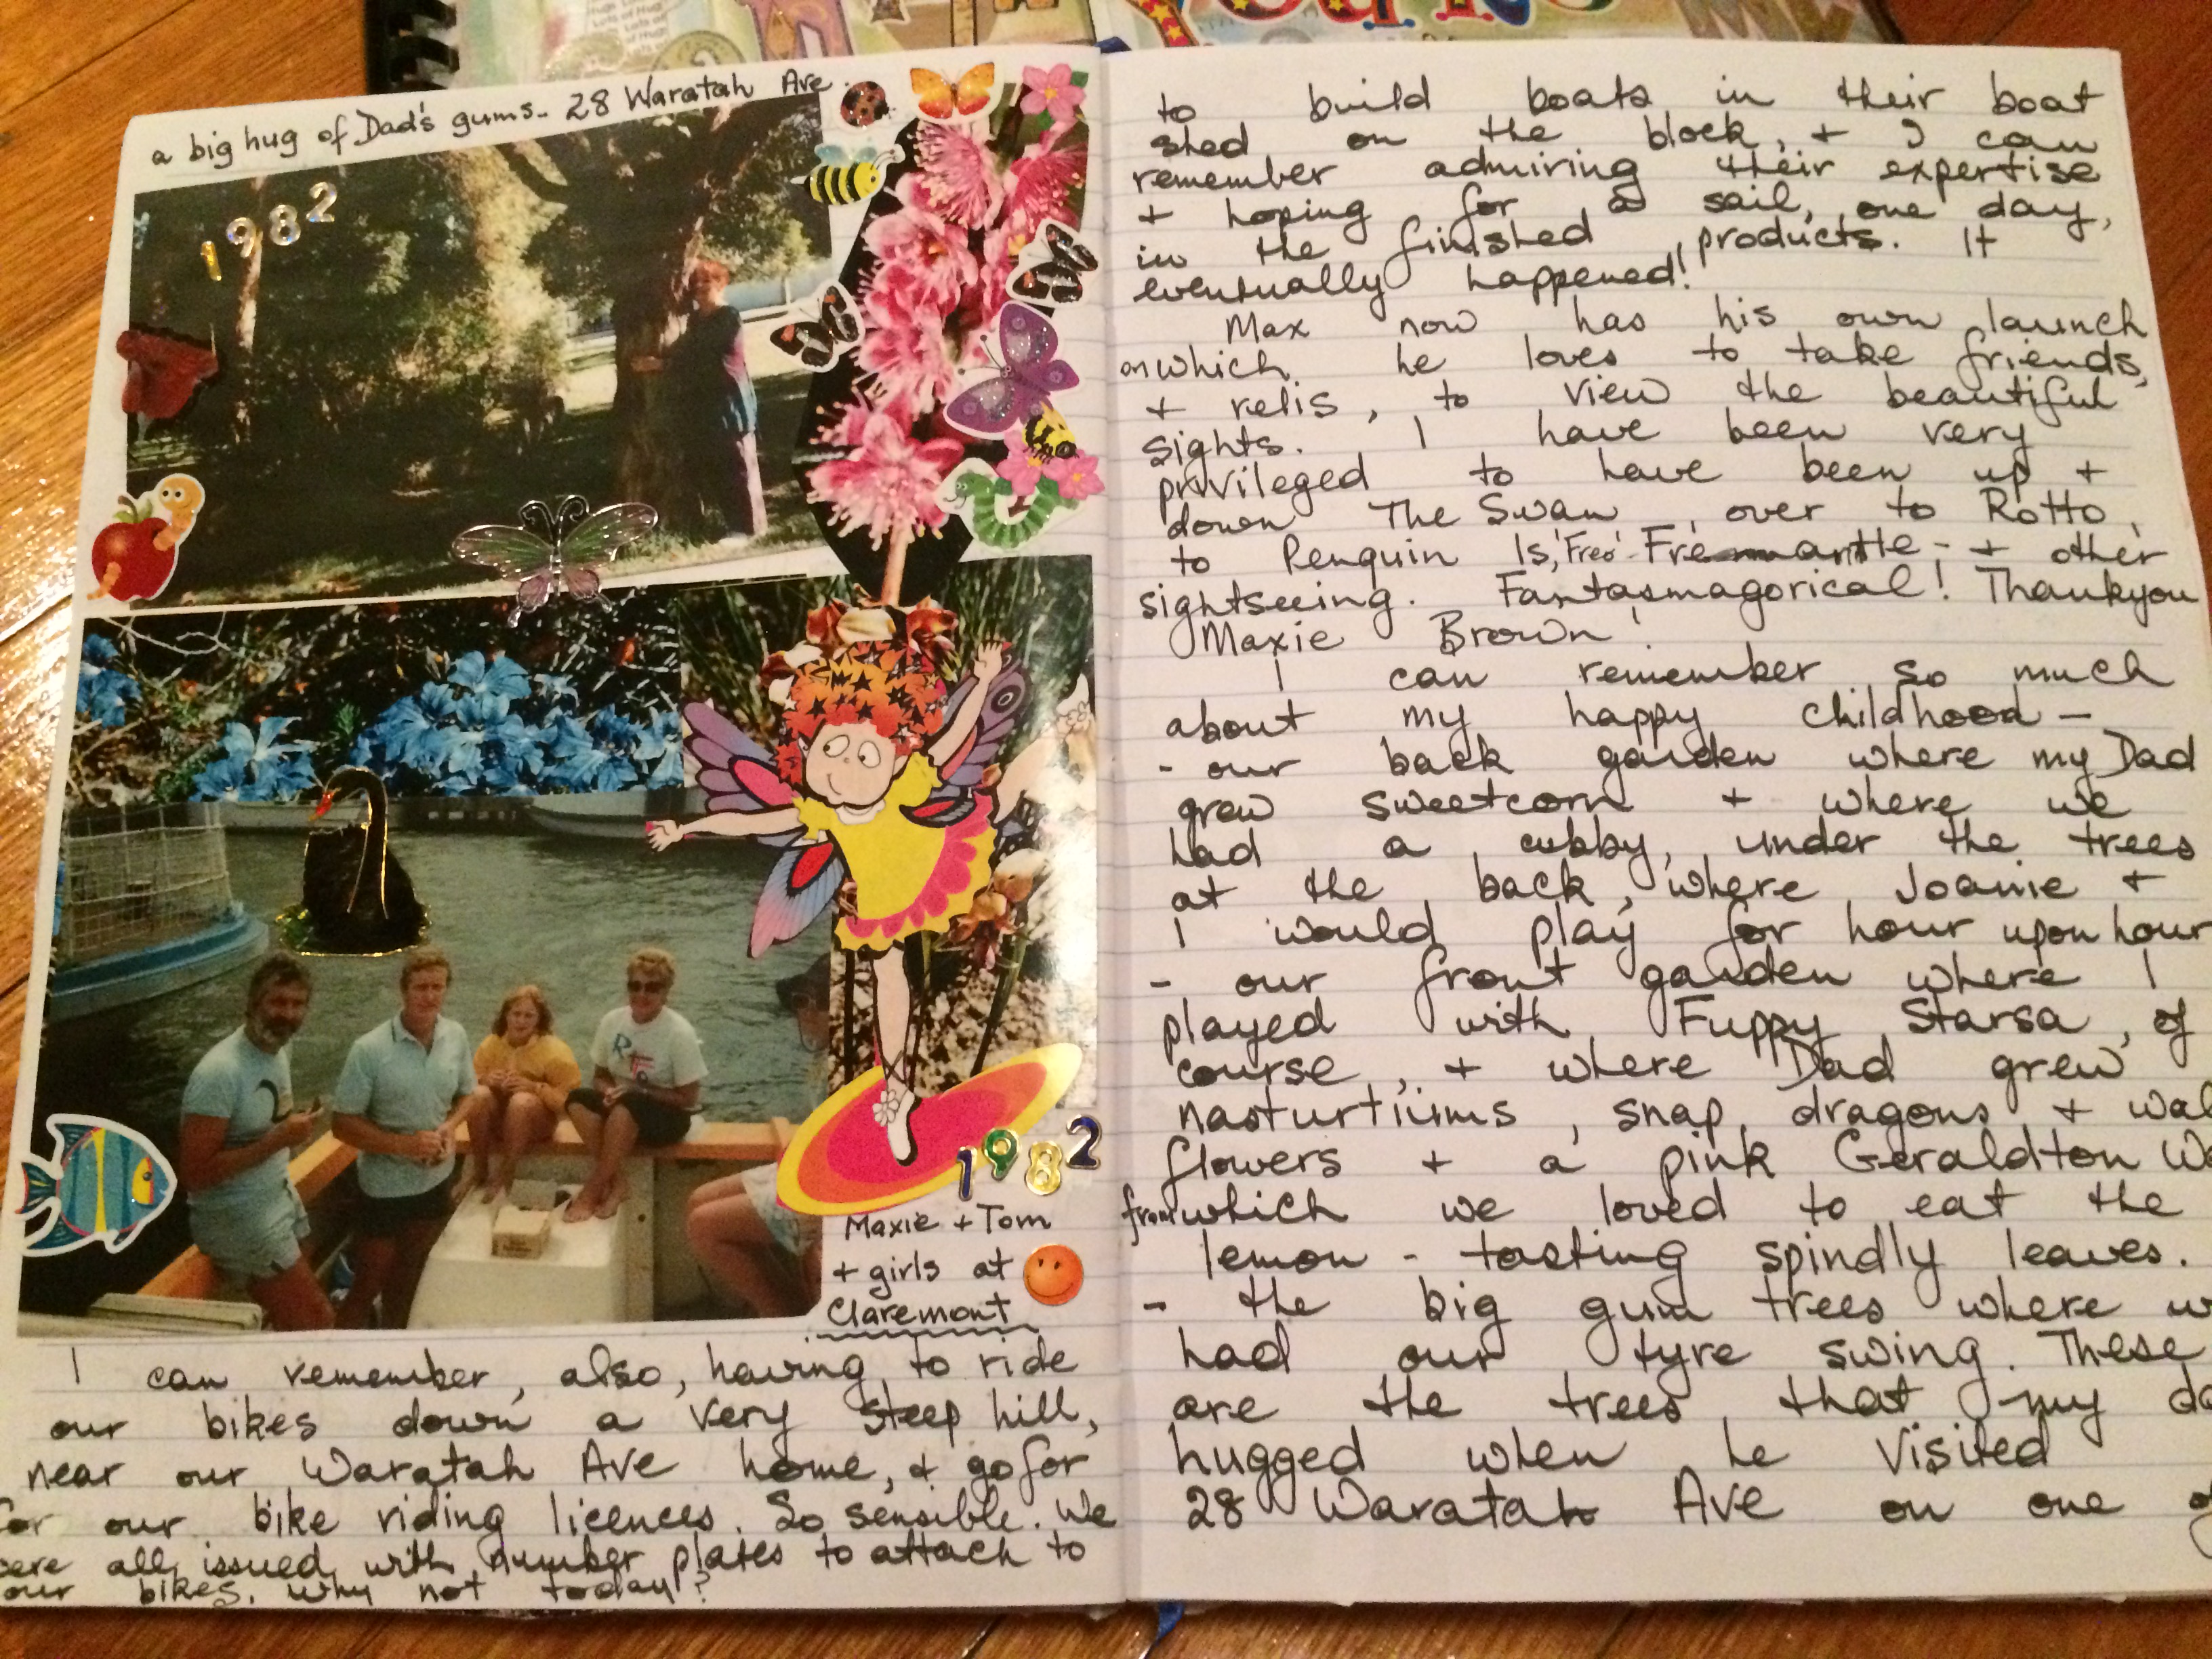 Lots of Hugs
Lots of Hugs
a big hug of Dad's gums - 28 Waratah Ave.
1982
1982
Maxie + Tom
+ girls at
Claremont
I can remember, also, having to ride
our bikes down a very steep hill,
near our Waratah Ave home, + go for
for our bike riding licences. So sensible. We
were all issued with number plates to attach to
our bikes. Why not today?
to build boats in their boat
shed on the block, + I can
remember admiring their expertise
+ hoping for a sail, one day,
in the finished products. It
eventually happened!
Max now has his own launch
on which he loves to take friends,
+ relis, to view the beautiful
sights. I have been very
privileged to have been up +
down The Swan, over to Rotto,
to Penguin Is, 'Freo' - Fremantle - + other
sightseeing. Fantasmagorical! Thankyou
Maxie Brown!
I can remember so much
about my happy childhood -
- our back garden where my Dad
grew sweetcorn + where we
had a cubby, under the trees
at the back, where Joanie +
I would play for hour upon hour
- our front garden where I
played with Fuppy Starsa, of
course, + where Dad grew
nasturtiums, snap dragons + wal
flowers + a pink Geraldton Wa
from which we loved to eat the
lemon - tasting spindly leaves.
- the big gum trees where w
had our tyre swing. These
are the trees that my da
hugged when he visited
28 Waratah Ave on one of